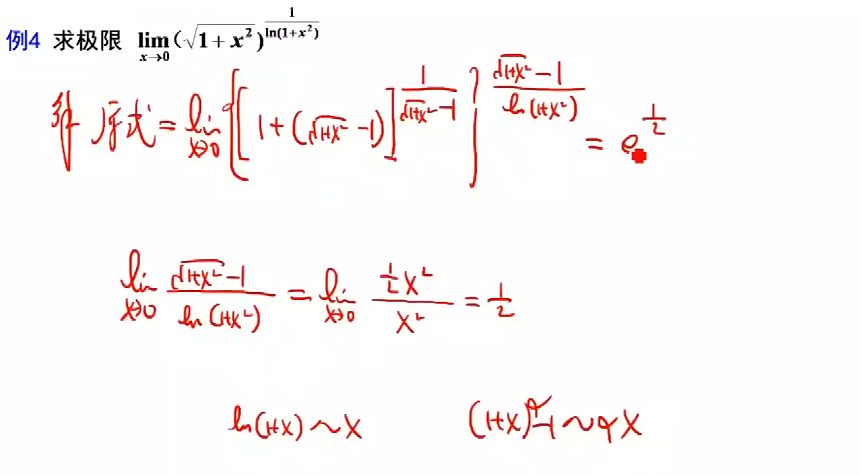 例4 求极限 lim_{x→0} (√(1+x²))^{1/ln(1+x²)}
解 原式 = lim_{x→0} {[1+(√(1+x²) -1)]^{1/(√(1+x²) -1)}}^{(√(1+x²) -1)/ln(1+x²)} = e^{1/2}
lim_{x→0} (√(1+x²) -1)/ln(1+x²) = lim_{x→0} (½x²)/x² = 1/2
ln(1+x) ~ x (1+x)^α -1 ~ αx